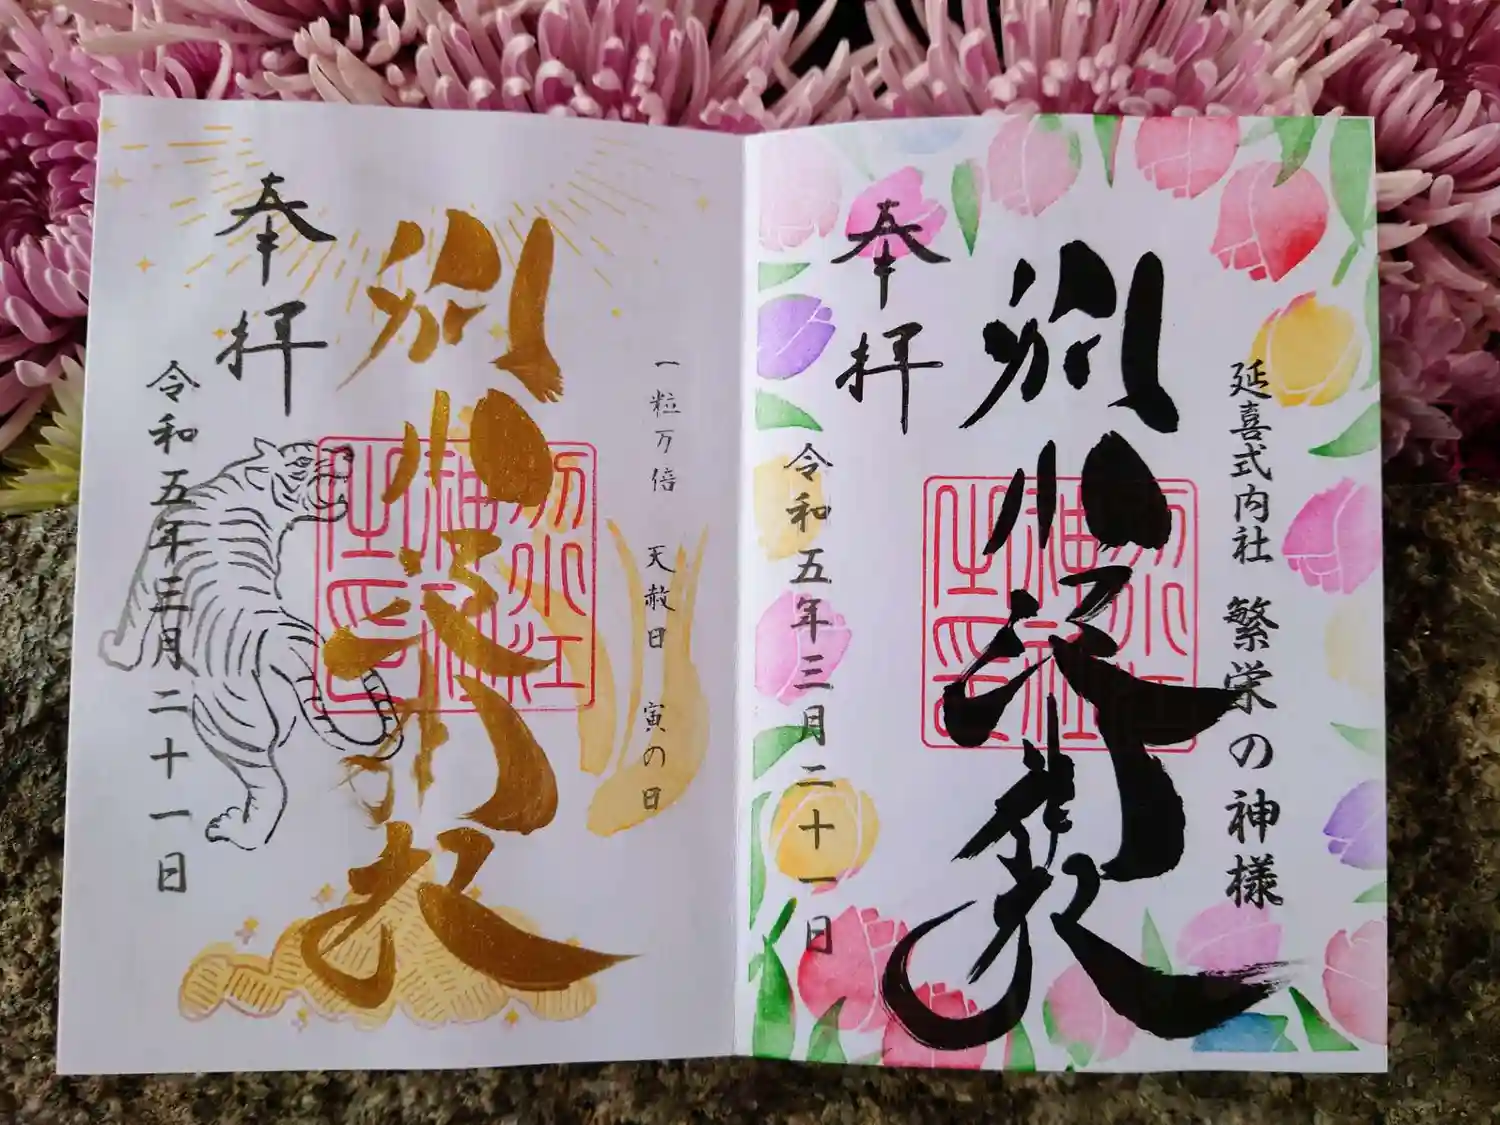 延喜式内社 繁栄の神様
別小江神社
別小江
神社
之印
奉拝
令和五年三月二十一日
一粒万倍 天赦日 寅の日
別小江神社
別小江
神社
之印
奉拝
令和五年三月二十一日